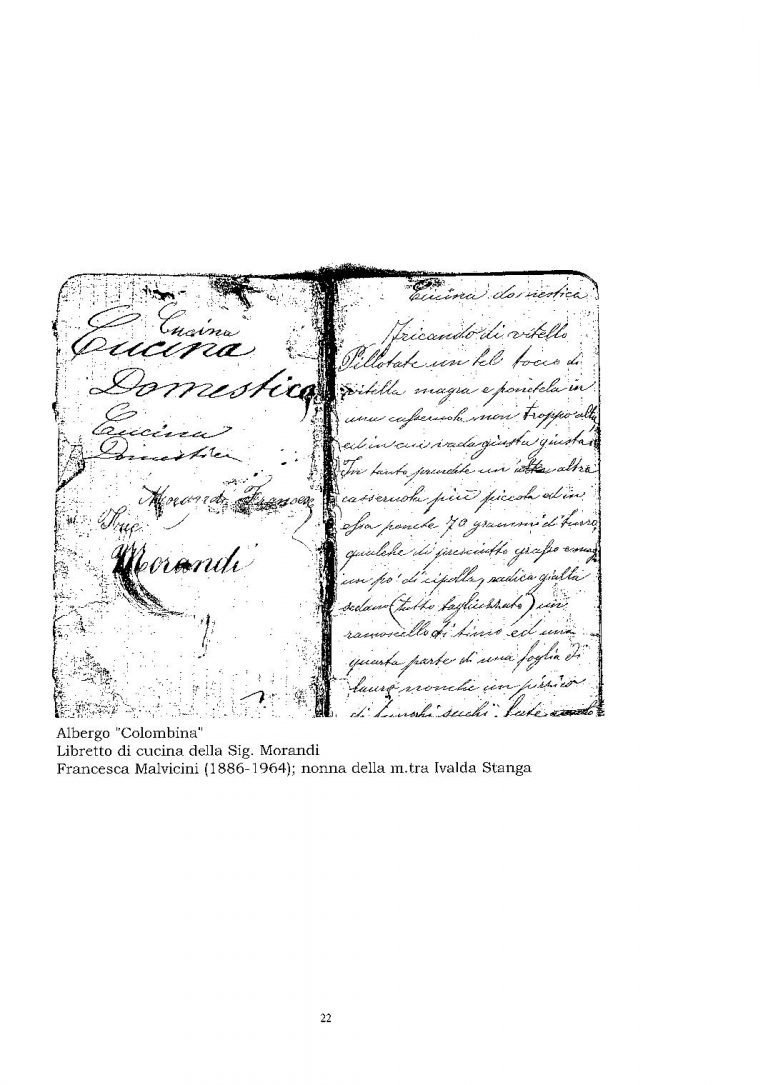 Cucina
Cucina
Domestica
Cucina
Domestica
Morandi
Morandi
Cucina domestica
Fricando di vitello
Pillotate un bel tocco di
vitella magra e ponetela in
una casseruola non troppo alta
ed in cui vada giusta giusta
In tanto prendete un altra
casseruola più piccola ed in
essa ponete 70 grammi di burro,
qualche di presciutto grasso e
un po' di cipolla, radica gialla
sedano (tutto tagliuzzato) un
ramoscello di timo ed una
quarta parte di una foglia di
lauro nonchè un pizzico
di funghi sechi. fate
Albergo "Colombina"
Libretto di cucina della Sig. Morandi
Francesca Malvicini (1886-1964); nonna della m.tra Ivalda Stanga
22